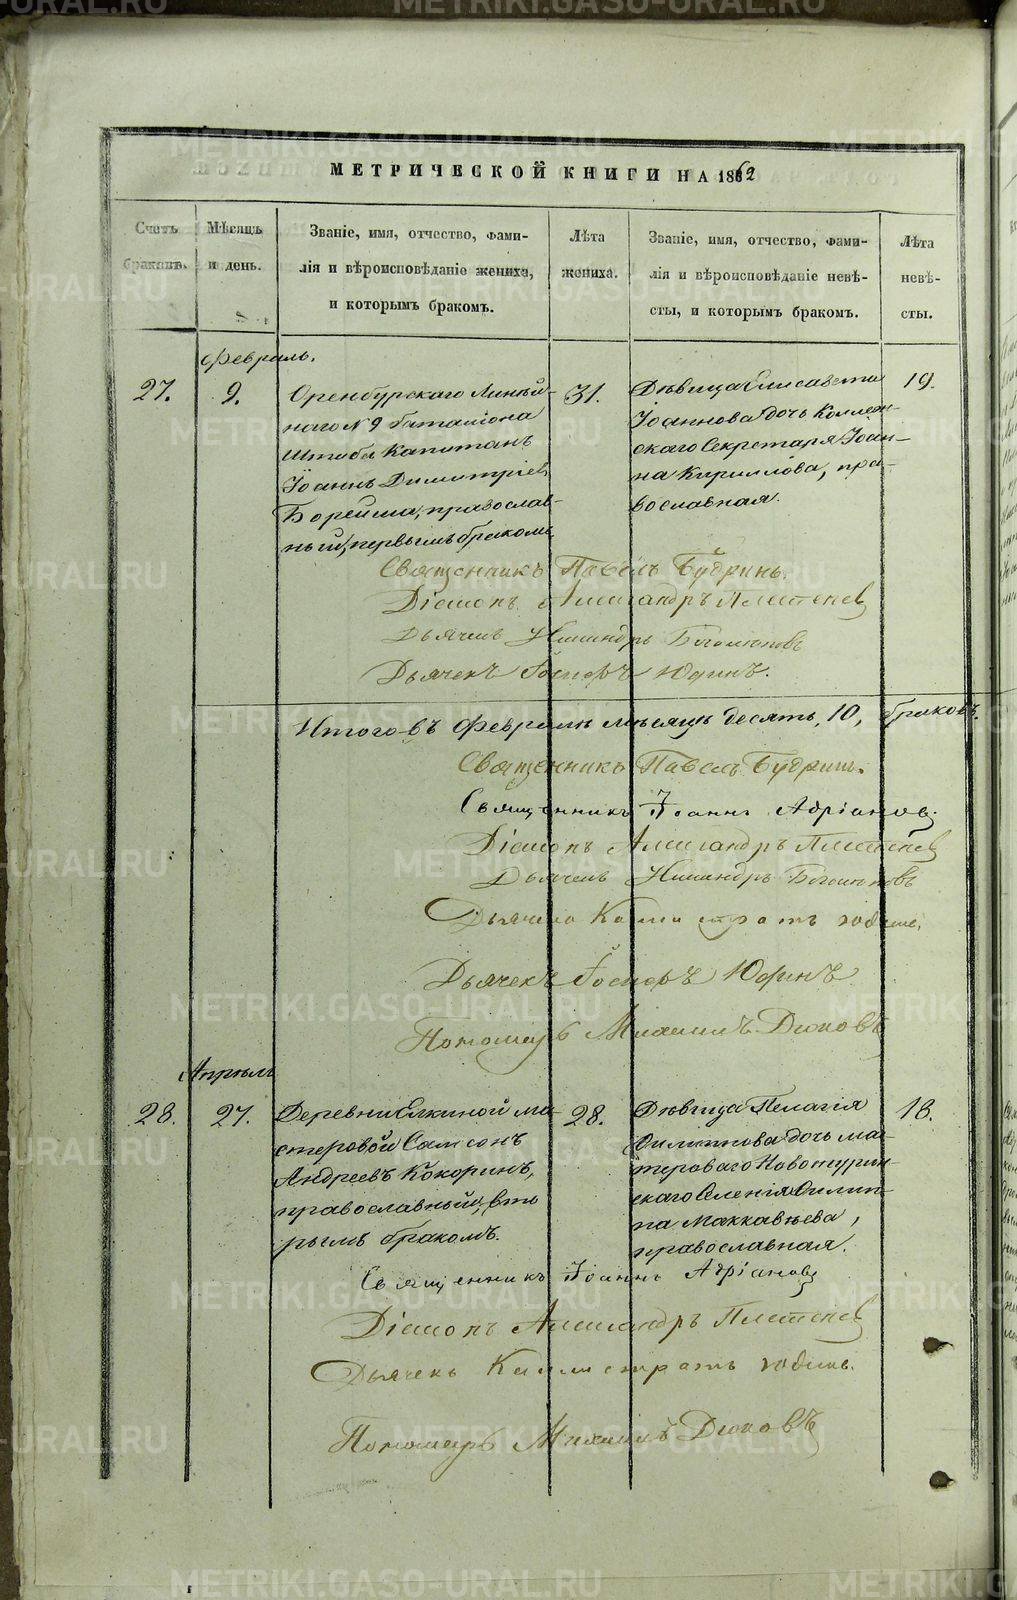 МЕТРИЧЕСКОЙ КНИГИ НА 1862
Счетъ браковъ.
Мѣсяцъ и день.
Званіе, имя, отчество, фами-
лія и вѣроисповѣданіе жениха,
и которымъ бракомъ.
Лѣта
жениха.
Званіе, имя, отчество, фами-
лія и вѣроисповѣданіе невѣ-
сты, и которымъ бракомъ.
Лѣта
невѣ-
сты.
Февраль.
27.
9.
Оренбурскаго Линѣй-
наго № 9 баталіона
Штабсъ Капитанъ
Іоаннъ Димитріев
Борейша, православ-
ный, первымъ бракомъ
31.
Дѣвица Елисавета
Іоаннова дочь Коллеж-
скаго Секретаря Іоан-
на Кириллова, пра-
вославная.
19.
Священникъ Павелъ Будринъ.
Діаконъ Александръ Плетенев
Дьячекъ Никандръ Богомоловъ
Дьячекъ Юдинъ.
Итого въ Февралѣ мѣсяцѣ десять, 10, браковъ.
Священникъ Павелъ Будринъ.
Священникъ Іоаннъ Адріанов.
Діаконъ Александръ Плетенев
Дьячекъ Никандръ Богомоловъ
Дьячекъ Каллистратъ
Дьячекъ Юдинъ
Пономарь Михаилъ Дюковъ
Апрѣль
28.
27.
Деревни Елкиной ма-
стеровой Самсонъ
Андреевъ Кокоринъ,
православный, вто
рымъ бракомъ.
28.
Дѣвица Пелагія
Филиппова дочь мас-
тероваго Новотурин-
скаго Селенія Филип-
па Маккавѣева,
православная.
18.
Священникъ Іоаннъ Адріановъ
Діаконъ Александръ Плетенев
Дьячекъ Каллистратъ
Пономарь Михаилъ Дюковъ
METRIKI.GASO-URAL.RU